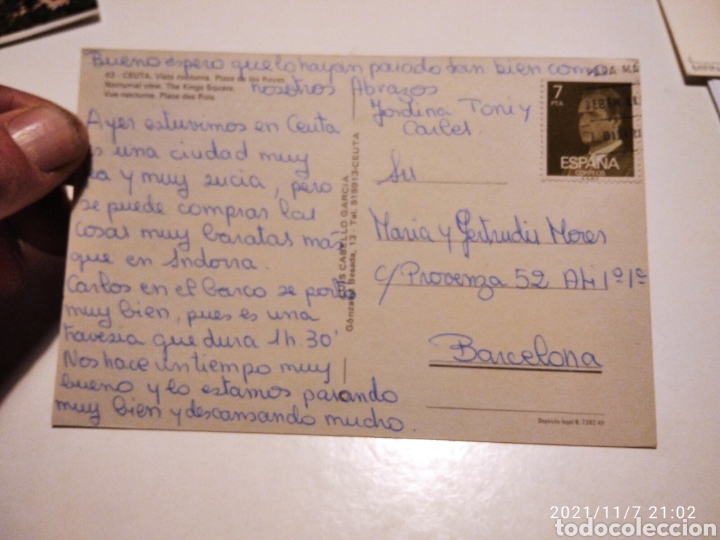 Bueno espero que lo hayan pasado tan bien como
nosotros Abrazos
Jordina Toni y
Carles
43 - CEUTA. Vista nocturna. Plaza de los Reyes
Nocturnal view. The Kings Square.
Vue nocturne. Place des Rois.
Ayer estuvimos en Ceuta
es una ciudad muy
y muy sucia, pero
se puede comprar las
cosas muy baratas mas
que en Andorra.
Carlos en el barco se porto
muy bien, pues es una
travesia que dura 1h. 30'
Nos hace un tiempo muy
bueno y lo estamos pasando
muy bien y descansando mucho.
LUIS CABELLO GARCIA
Gónzalez Besada, 13 - Tel. 515913-CEUTA
7
PTA
ESPAÑA
CORREOS
Sr.
Maria y Gertrudis Mores
c/ Provenza 52 Ati 1º 1ª
Barcelona
Depósito legal B. 7382
2021/11/7 21:02
todocoleccion